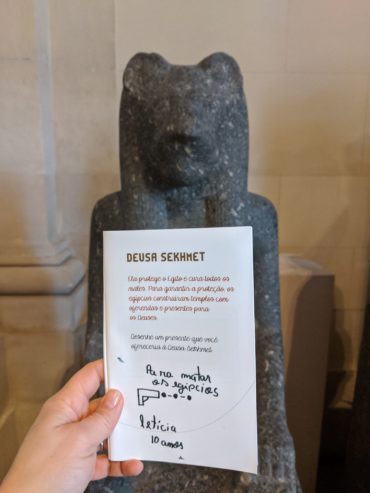 DEUSA SEKHMET
Ela protege o Egito e cura todos os
males. Para garantir a proteção, os
egípcios construíram templos com
oferendas e presentes para
os Deuses.
Desenhe um presente que você
ofereceria à Deusa Sekhmet
Para matar
os egípcios
letícia
10 anos